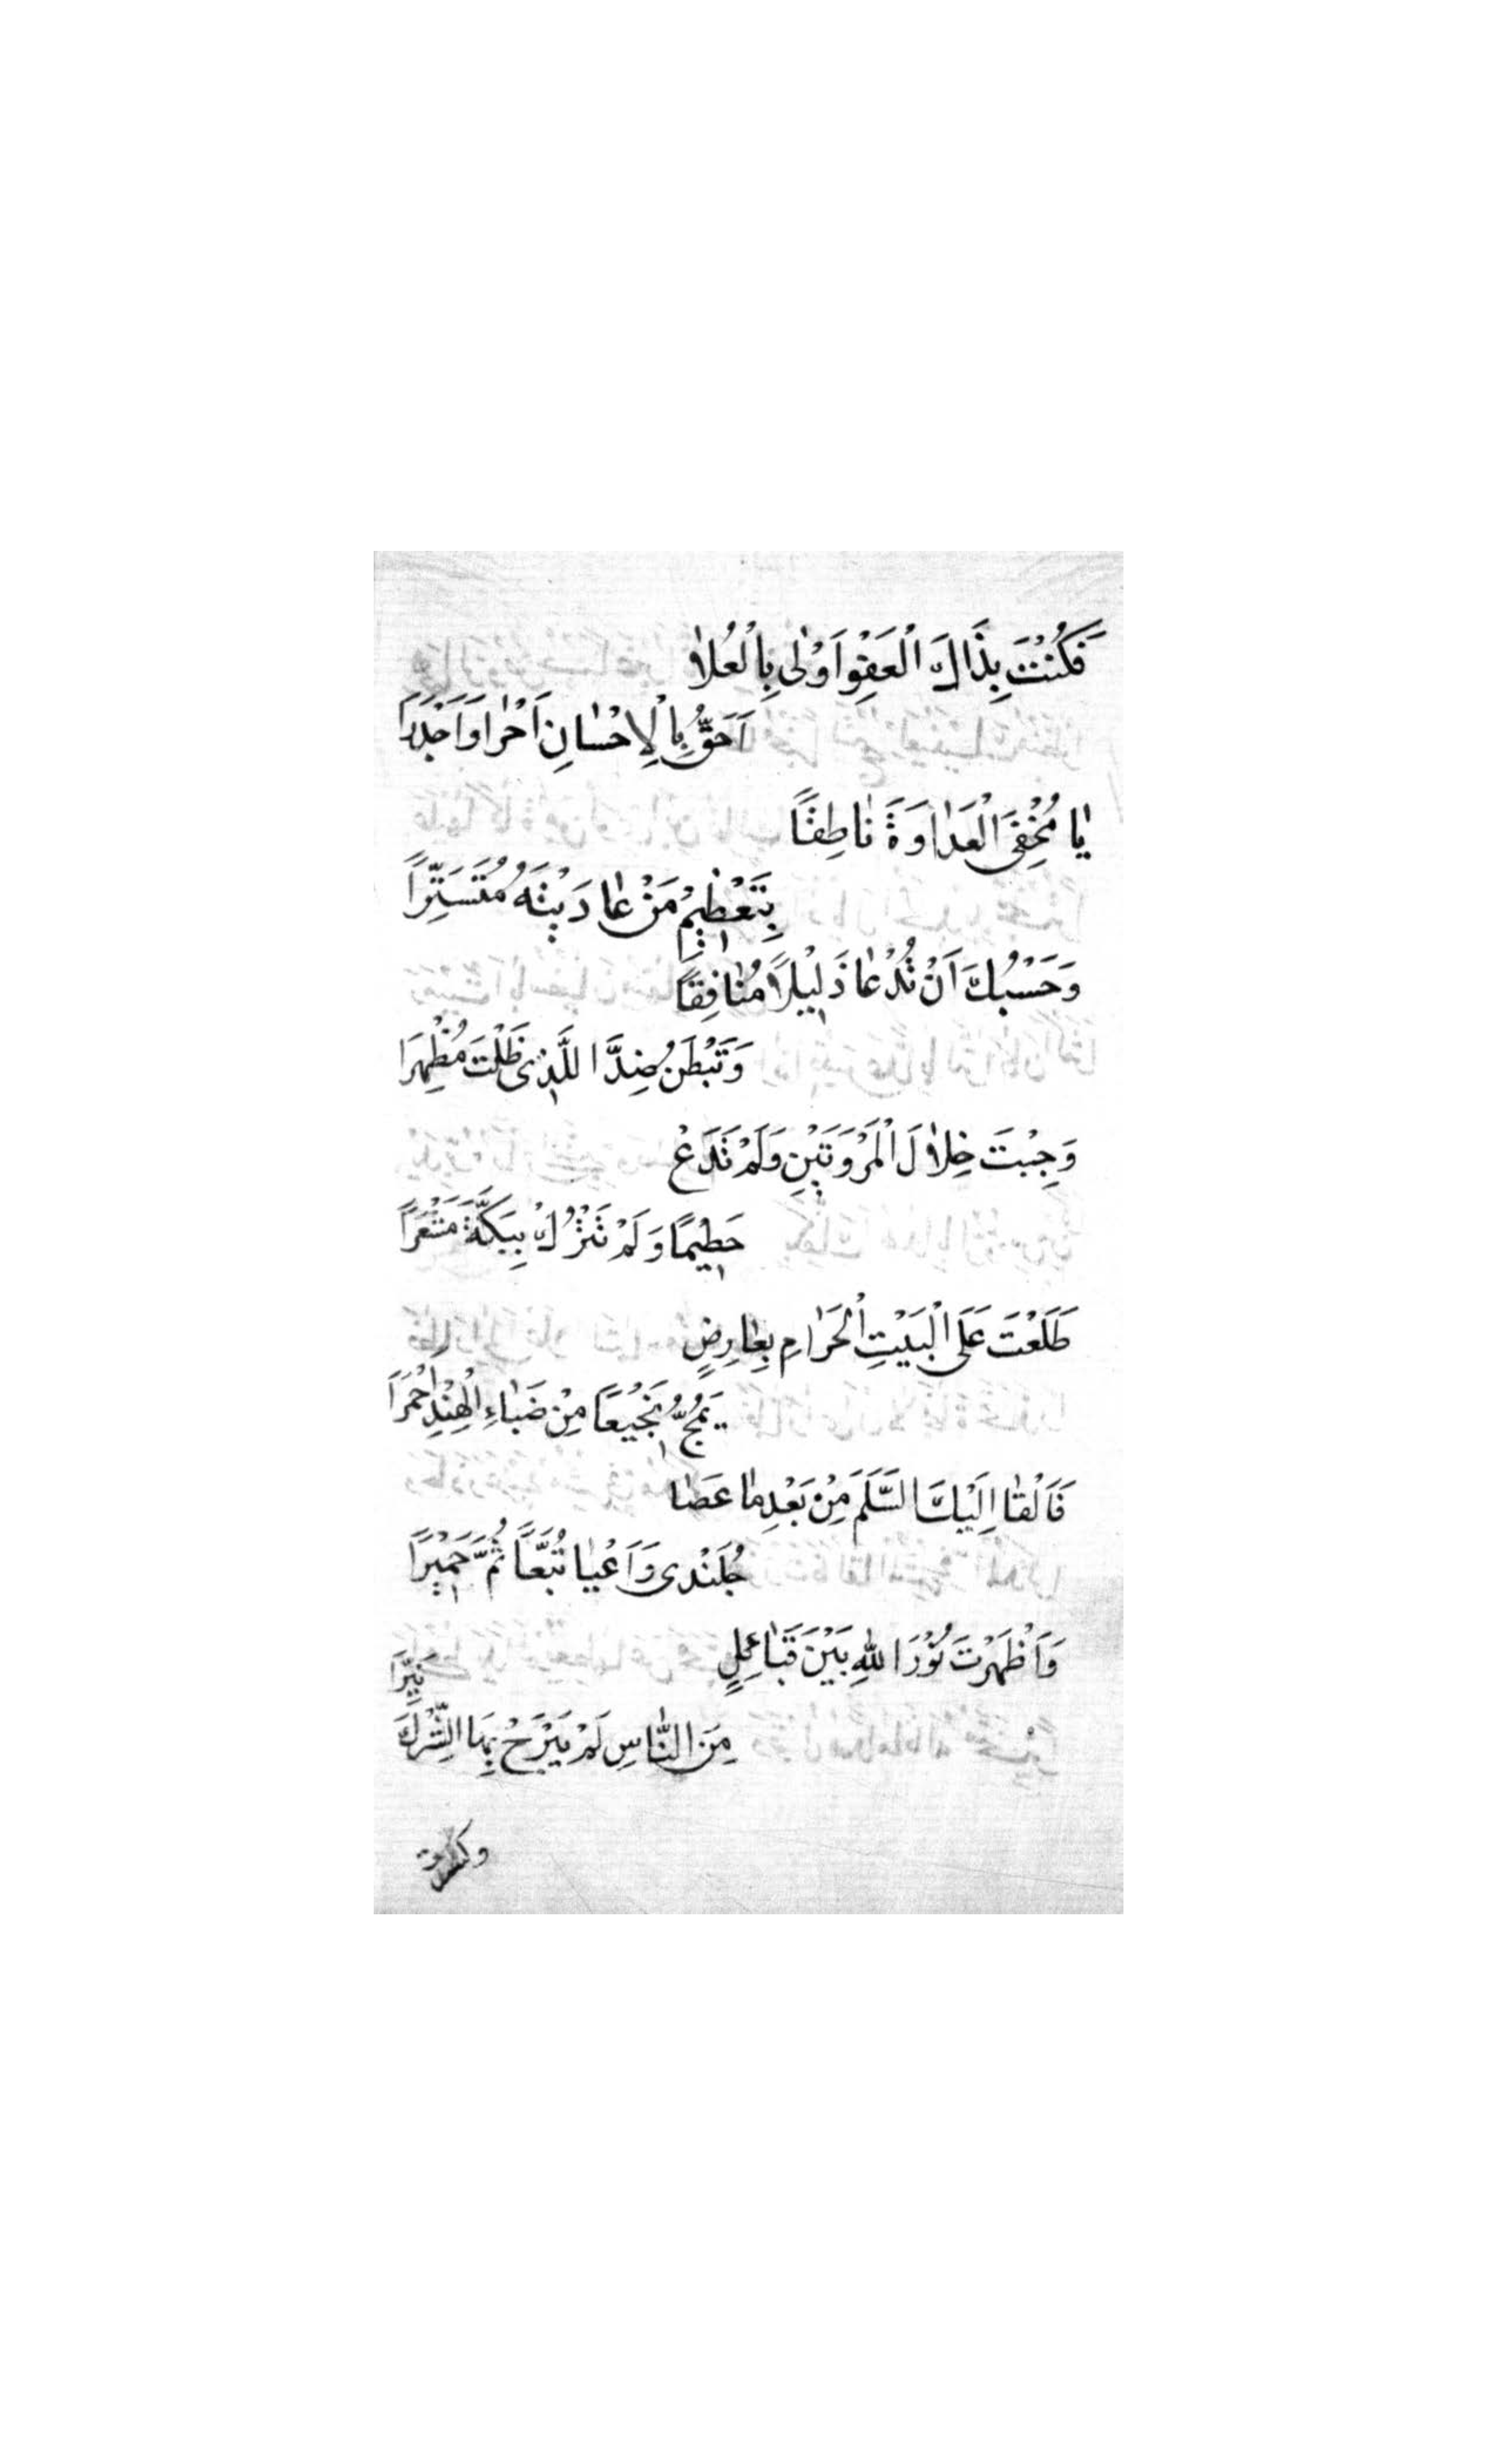 فَكُنْتَ بِذَاكَ الْعَفْوِ اَوْلٰى بِالْعُلَا
اَحَقُّ بِالْاِحْسَانِ اَحْرَا وَاَجْدَرَا
يَا مُخْفِىَ الْعَدَاوَةَ نَاطِقًا
بِتَعْظِيْمِ مَنْ عَادَيْتَهُ مُتَسَتِّرًا
وَحَسْبُكَ اَنْ تُدْعَا ذَلِيْلًا مُنَافِقًا
وَتُبْطِنُ ضِدًّا لِلَّذِى ظَلْتَ مُظْهِرَا
وَجِبْتَ خِلَالَ الْمَرْوَتَيْنِ وَلَمْ تَدَعْ
حَطِيْمًا وَلَمْ تَتْرُكْ بِبَكَّةَ مَشْعَرًا
طَلَعْتَ عَلَى الْبَيْتِ الْحَرَامِ بِعَارِضٍ
يَمُجُّ نَجِيْعًا مِنْ ضَبَاءِ الْهِنْدِ اَحْمَرًا
فَاَلْقَا اِلَيْكَ السَّلَمَ مِنْ بَعْدِ مَا عَصَا
جُلَنْدَى وَاَعْيَا تُبَّعًا ثُمَّ حِمْيَرًا
وَاَظْهَرْتَ نُوْرَ اللّٰهِ بَيْنَ قَبَائِلٍ
مِنَ النَّاسِ لَمْ يَبْرَحْ بِهَا الشِّرْكَ نَيِّرًا